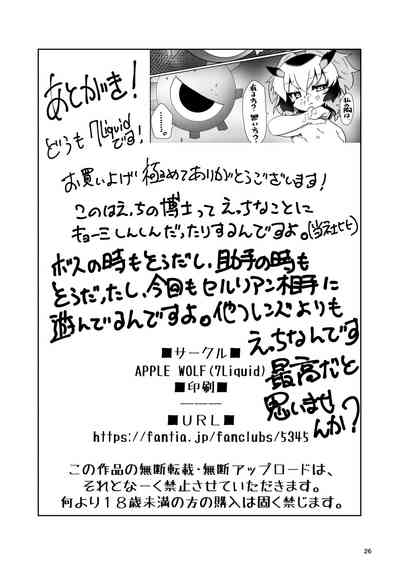 あとがき!
どうも 7Liquid
です!
お買いよげ 極めてありがとうございます!
このはえっちの博士って えっちなことに
キョーミしんしんだったりするんですよ。(当社ヒヒ)
ボスの時もそうだし、助手の時も
そうだったし、今回もセルリアン相手に
遊んでるんですよ。他フレンズよりも
えっちなんです
最高だと
思いませ
んか?
■サークル■
APPLE WOLF(7Liquid)
■印刷■
———
■URL■
https://fantia.jp/fanclubs/5345
この作品の無断転載・無断アップロードは、
それとなーく禁止させていただきます。
何より18歳未満の方の購入は固く禁じます。
26